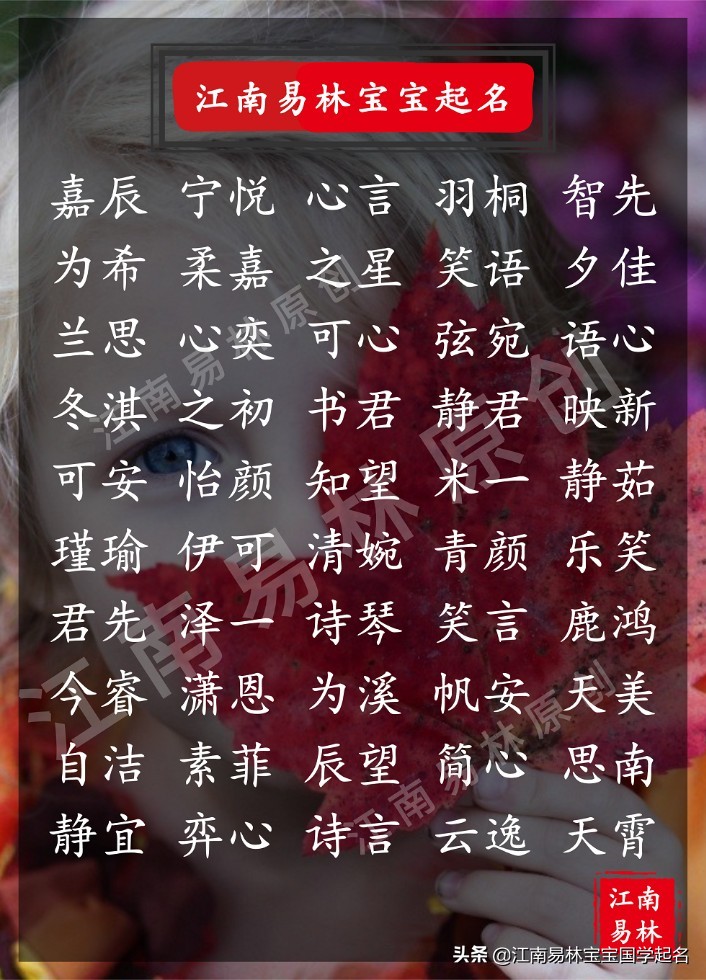 江南易林宝宝起名
嘉辰 宁悦 心言 羽桐 智先
为希 柔嘉 之星 笑语 夕佳
兰思 心奕 可心 弦宛 语心
冬淇 之初 书君 静君 映新
可安 怡颜 知望 米一 静茹
瑾瑜 伊可 清婉 青颜 乐笑
君先 泽一 诗琴 笑言 鹿鸿
今睿 潇恩 为溪 帆安 天美
自洁 素菲 辰望 简心 思南
静宜 弈心 诗言 云逸 天霄
江南易林原创
江南易林原创
江南易林原创
江南
易林
头条 @江南易林宝宝国学起名